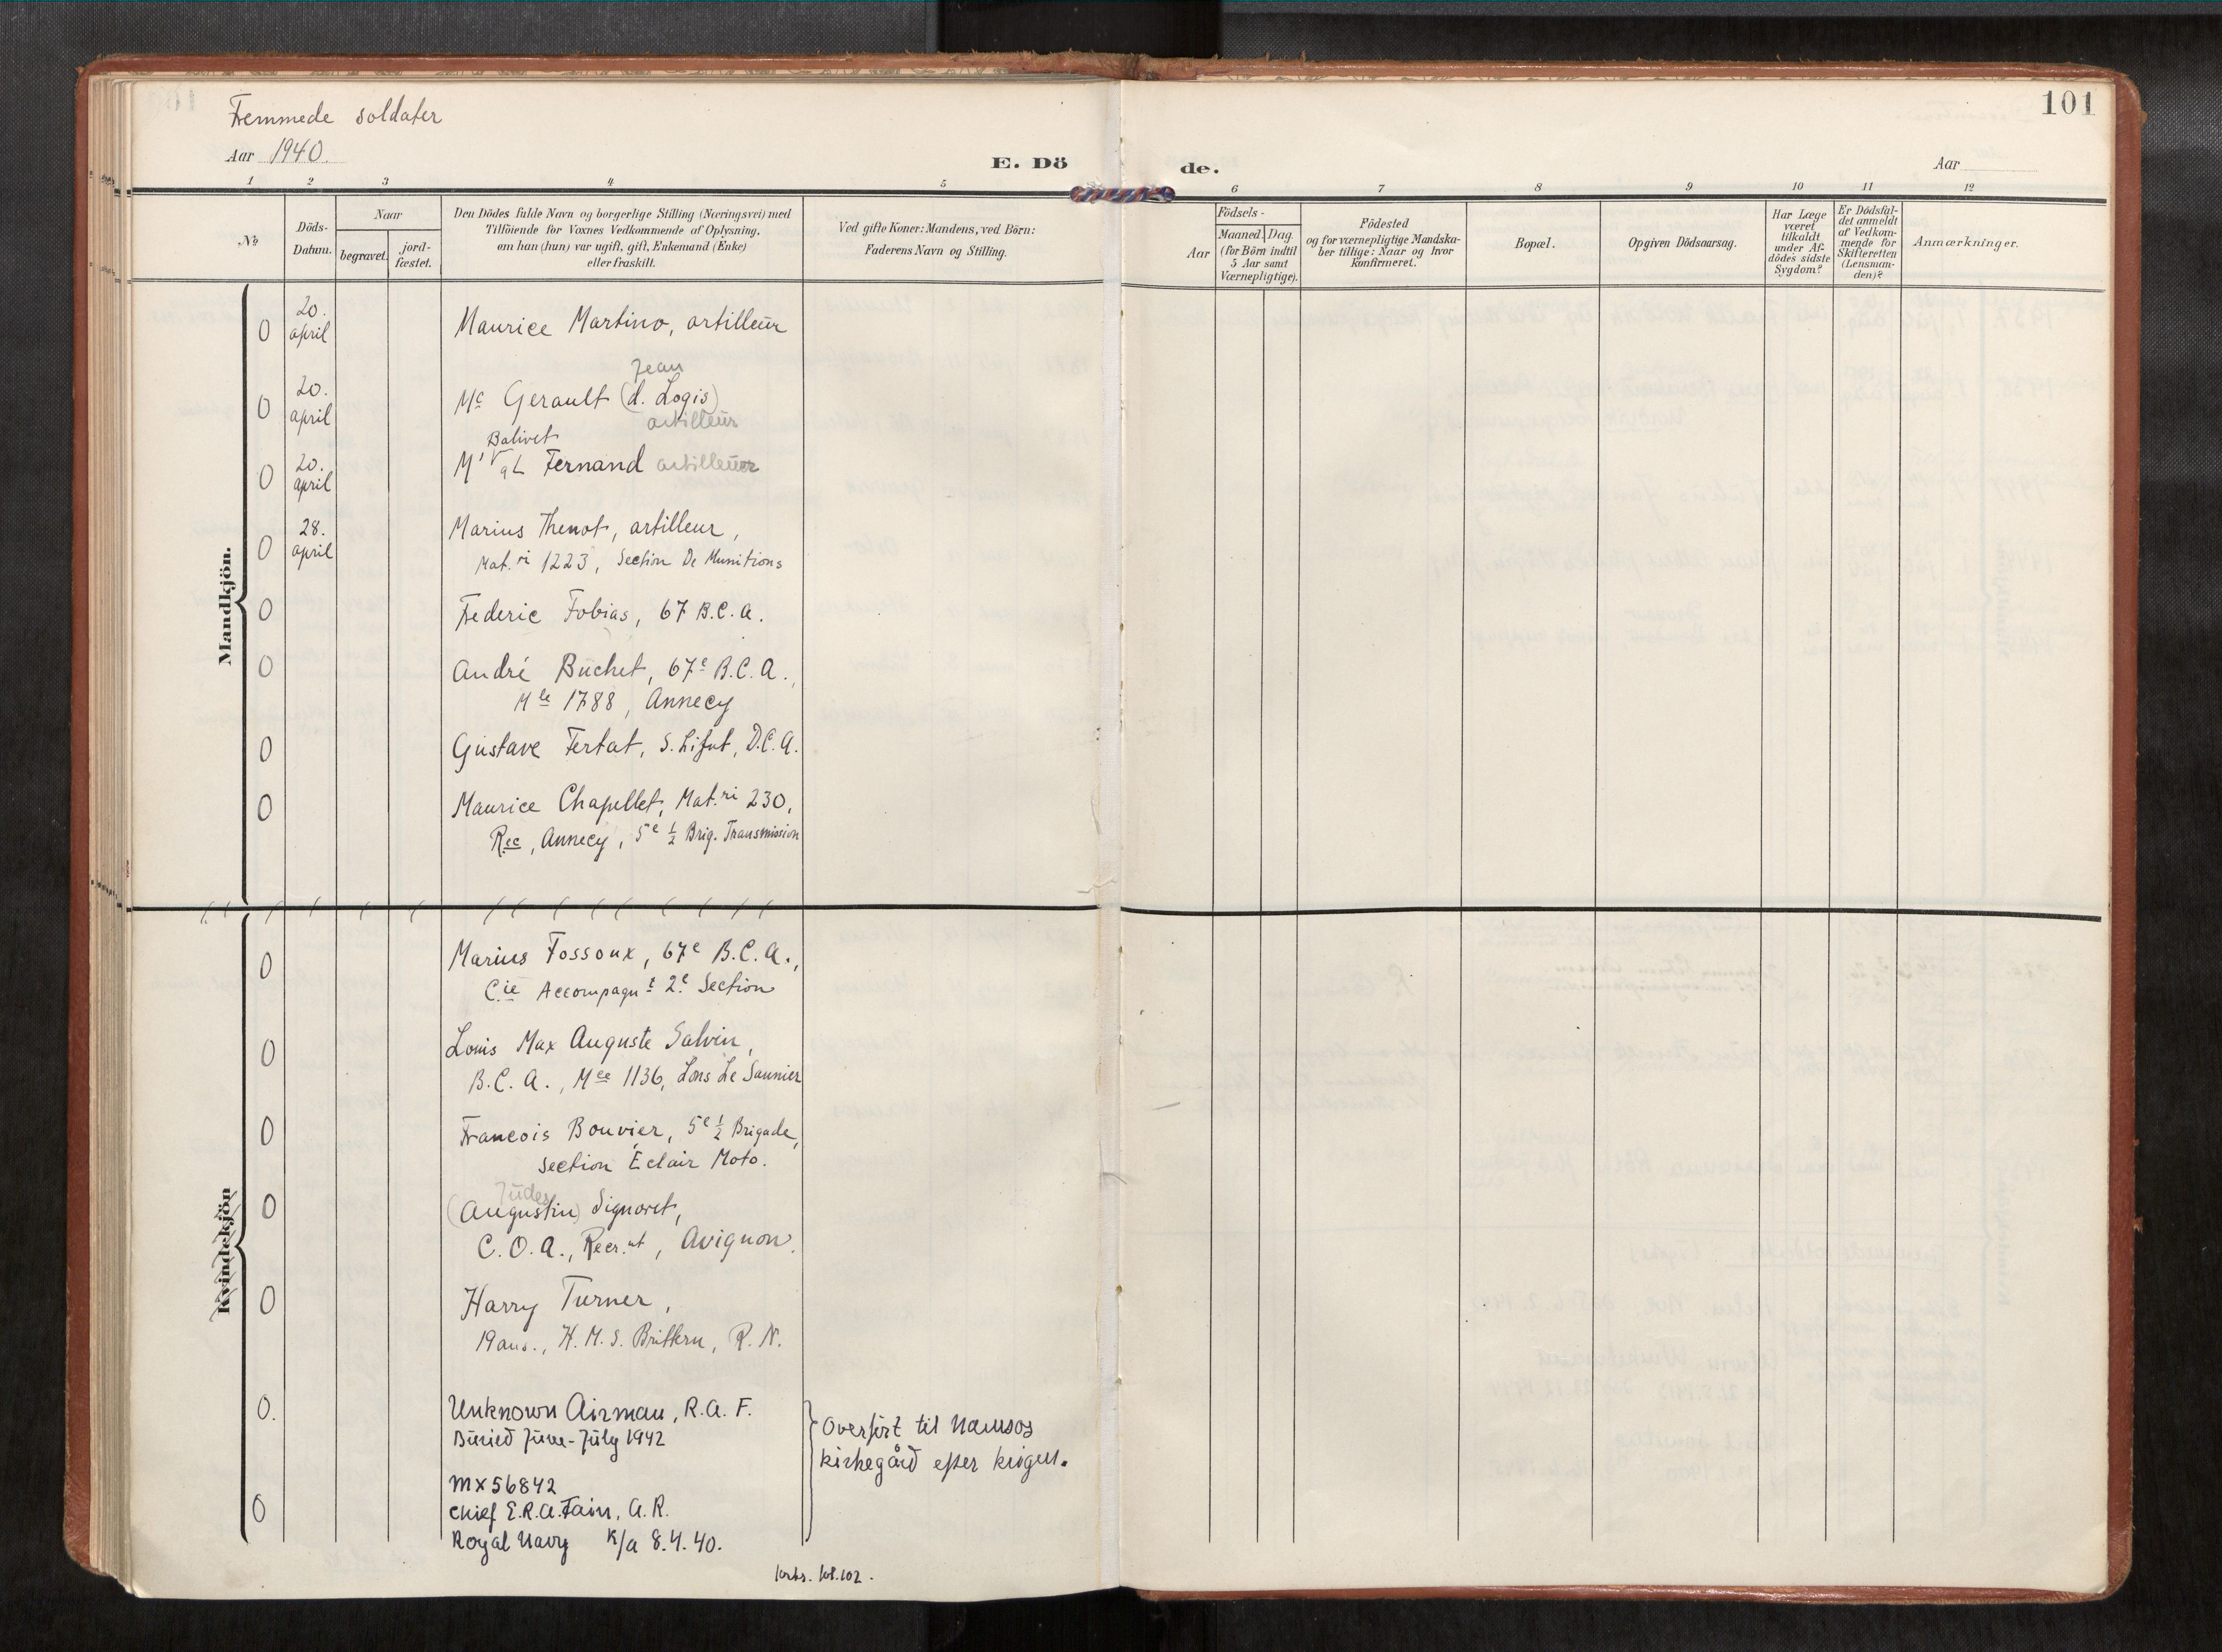 Fremmede soldater
101
Aar 1940.
E. Dö
de.
Aar
1 2 3 4 5 6 7 8 9 10 11 12
№
Döds-
Datum.
Naar
begravet.
jord-
fæstet.
Den Dödes fulde Navn og borgerlige Stilling (Næringsvei) med
Tilföiende for Voxnes Vedkommende af Oplysning,
om han (hun) var ugift, gift, Enkemand (Enke)
eller fraskilt.
Ved gifte Koner: Mandens, ved Börn:
Faderens Navn og Stilling.
Födsels-
Aar
Maaned.
Dag.
(for Börn indtil
5 Aar samt
Værnepligtige).
Födested
og for værnepligtige Mandska-
ber tillige: Naar og hvor
konfirmeret.
Bopæl.
Opgiven Dödsaarsag.
Har Læge
været
tilkaldt
under Af-
dödes sidste
Sygdom?
Er Dödsfal-
det anmeldt
af Vedkom-
mende for
Skifteretten
(Lensman-
den)?
Anmærkninger.
Mandkjön.
0 20. april Maurice Martino, artilleur
Jean
0 20. april Mc Gerault (d. Logis)
artilleur
Balivet
0 20. april M' gL Fernand artilleur
0 28. april Marius Thenot, artilleur,
Mat. ri 1223, Section De Munitions
0 Frederic Tobias, 67 B.C.A.
0 André Buchet, 67e B.C.A.,
Mle 1788, Annecy
0 Gustave Tertat, S. , D.C.A.
0 Maurice Chapellet, Mat. ri 230,
Rec, Annecy, 5e ½ Brig. Transmission
Kvindekjön
0 Marius Fossoux, 67e B.C.A.,
Cie Accompagnt 2e Section
0 Louis Max Auguste Salvin,
B.C.A., Mle 1136, Lons Le Saunier
0 Francois Bouvier, 5e ½ Brigade,
Section Éclair Moto.
Judes
0 (Augustin) Signoret,
C.O.A., Recr.nt, Avignon.
0 Harry Turner,
19 ans., H.M.S. Bittern, R.N.
0. Unknown Airman, R.A.F.
Buried June-July 1942
Overført til Namsos
kirkegård efter krigen.
MX56842
0 Chief E.R.A. Fain, A.R.
Royal Navy K/a 8.4.40.